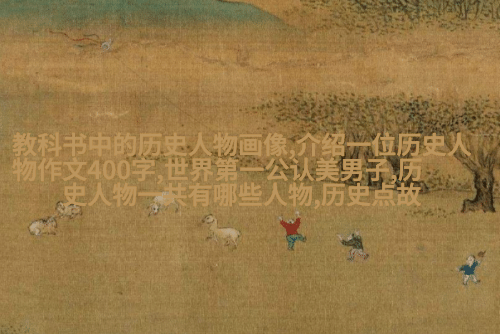 教科书中的历史人物画像,介绍一位历史人
物作文400字,世界第一公认美男子,历
史人物一共有哪些人物,历史点故